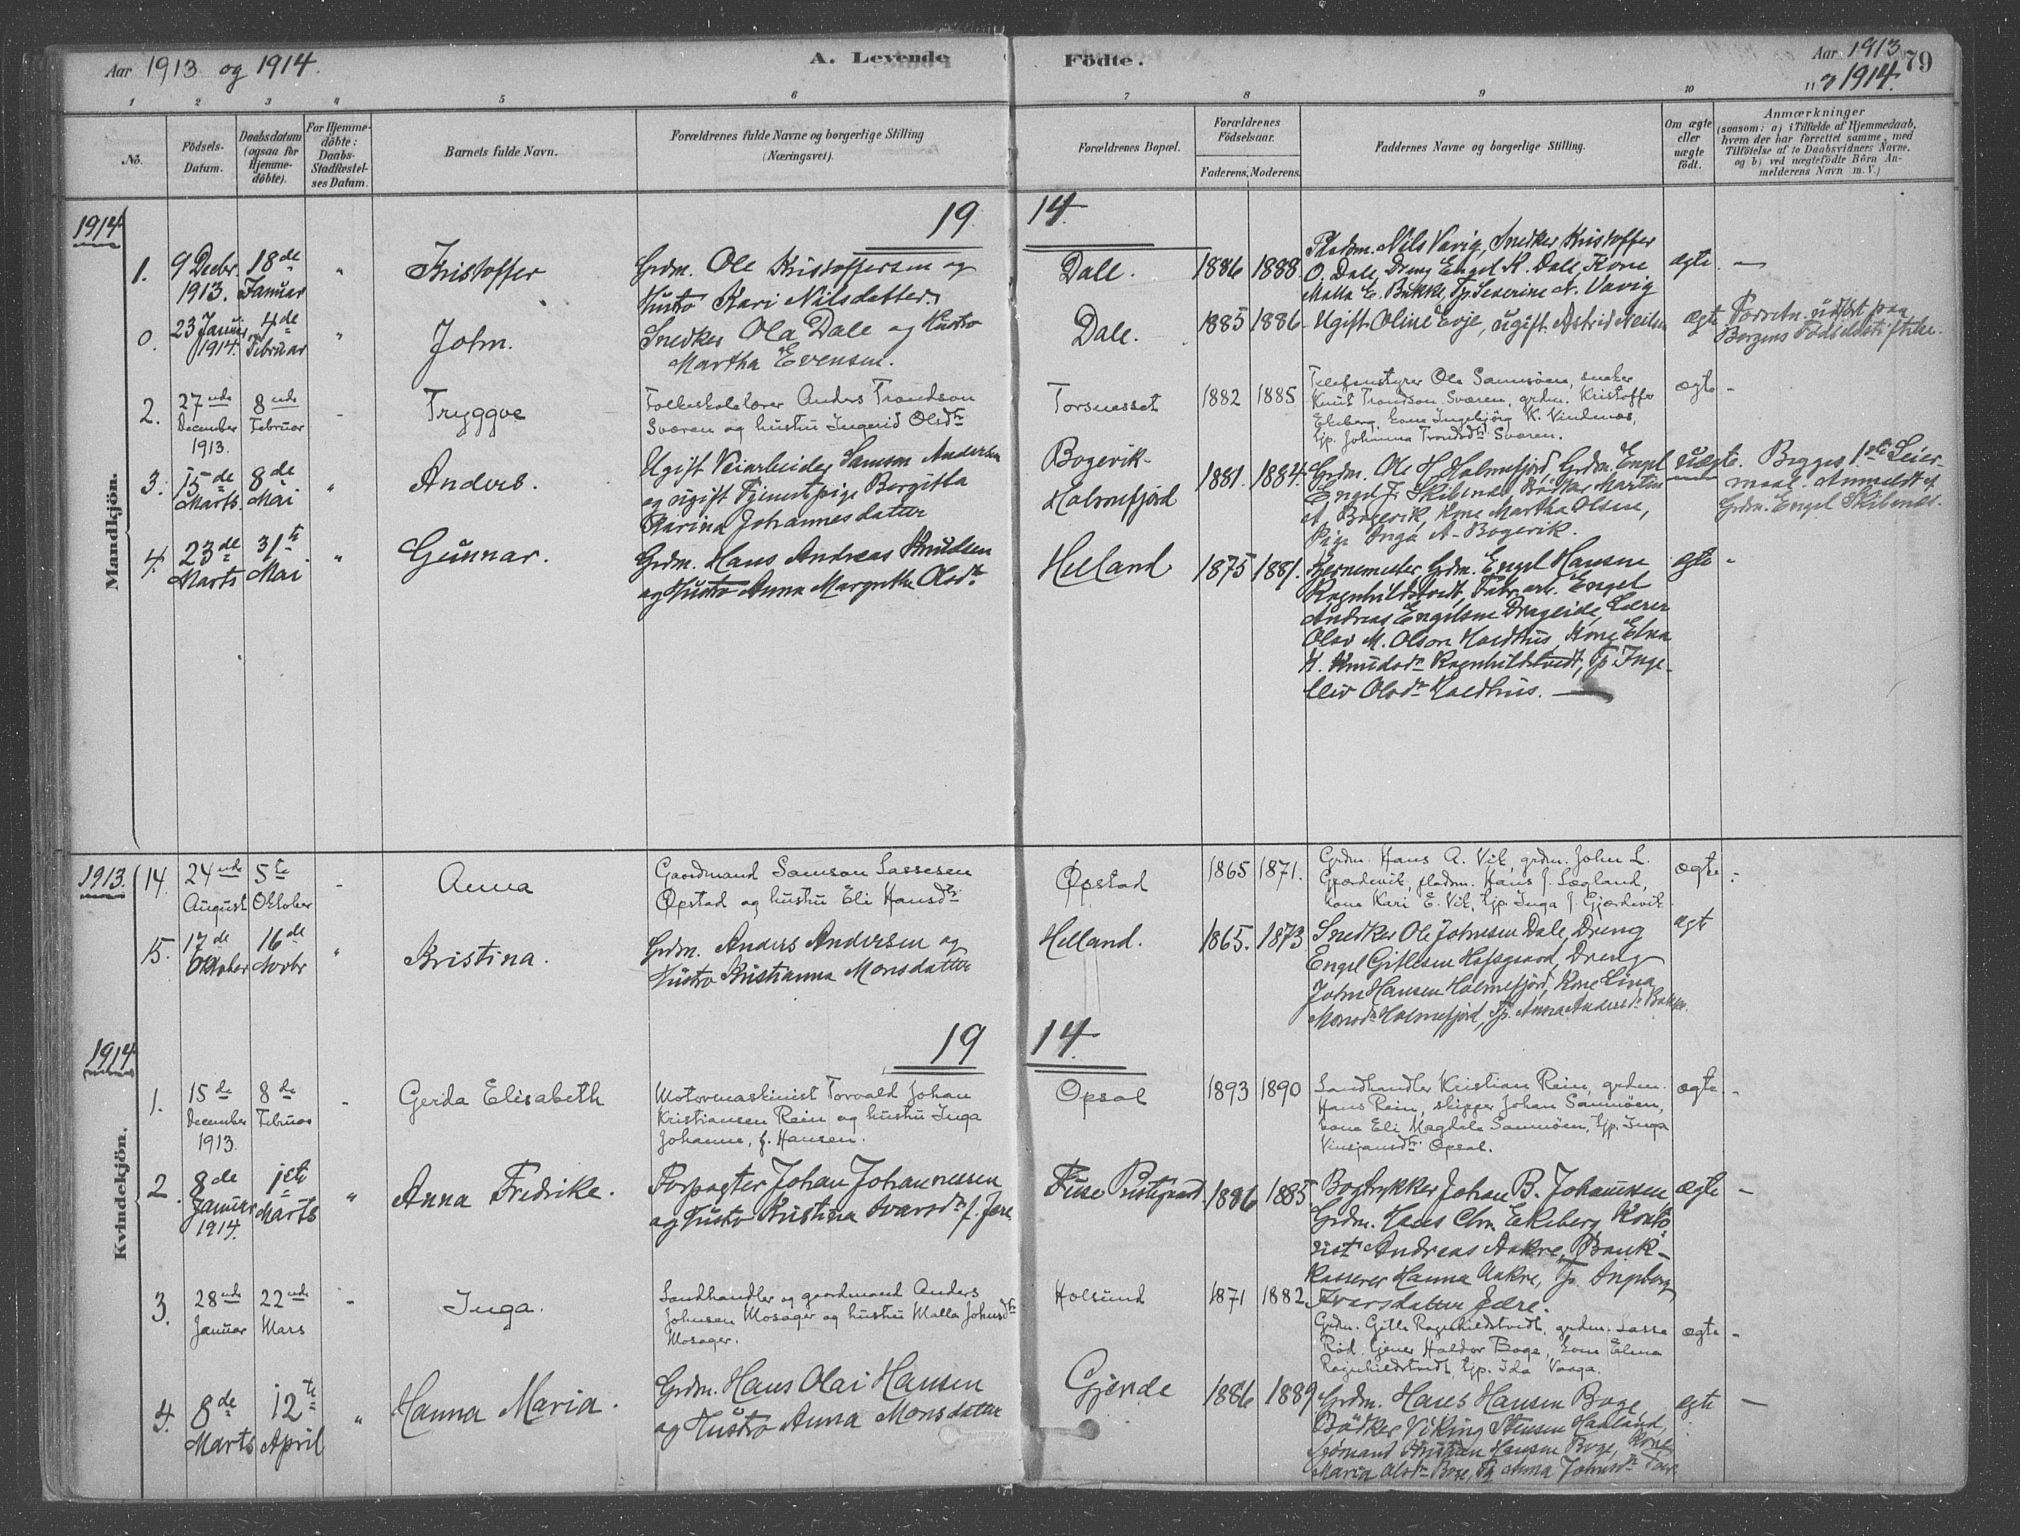 Aar 1913 og 1914.
A. Levende
Födte.
Aar 1913
79
1914.
1 2 3 4 5 6 7 8 9 10 11
No.
Födsels-Datum.
Daabsdatum (ogsaa for Hjemme-döbte).
For Hjemme-döbte: Daabs-Stadfæstel-ses Datum.
Barnets fulde Navn.
Forældrenes fulde Navne og borgerlige Stilling (Næringsvei).
Forældrenes Bopæl.
Forældrenes Födselsaar.
Faderens. Moderens.
Faddernes Navne og borgerlige Stilling.
Om ægte eller uægte födt.
Anmærkninger
(saasom: a) i Tilfælde af Hjemmedaab, hvem der har forrettet samme, med Tilföielse af to Daabsvidners Navne, og b) ved uægtefödte Börn An-melderens Navn m. V.)
Mandkjön.
1914
19 14.
1. 9 Decbr. 1913. 18de Januar " Kristoffer
Grdm. Ole Kristoffersen og
Hustro Kari Nilsdatter.
Dale. 1886 1888
Pladsm. Nils Vavig, Snedker Kristoffer
O. Dale, Dreng Engel K. Dale, Kone
Malla E. Bukke, Tp. Severine N. Vavig
ægte —
0. 23 Januar 1914. 4de Februar " John.
Snedker Ola Dale og Hustro
Martha Evensen.
Dale. 1885 1886
Ugift Oline Evje, ugift Astrid Neilsen
ægte
Forretn. udført paa
Bergens Fødselsstiftelse.
2. 27nde December 1913. 8nde Februar - Tryggve
Folkeskolelærer Anders Trondson
Sværen og hustru Ingerid Olsdtr
Torsnesset 1882 1885
Telefonstyrer Ole Samnøen, sneker
Knut Trondson Sværen, grdm. Kristoffer
Ekeberg, kone Ingebjørg K. Vindenæs,
tjp. Johanna Trondsdtr Sværen.
ægte -
3. 15de Marts 8de Mai " Anders.
Ugift Veiarbeider Samson Andersen
og ugift Tjenestepige Bergitta
Karina Johannesdatter
Bogevik-
Holmefjord
1881. 1884.
Grdm. Ole H. Holmefjord, Grdm. Engel
Engel J. Skibenes, Bødker Martin
A. Bogevik, Kone Martha Olsen,
Pige Inga A. Bogevik.
uægte. Begges 1ste Leier-
maal. Anmeldt af
Grdm. Engel Skibenes.
4. 23de Marts 31te Mai " Gunnar.
Grdm. Hans Andreas Knudsen
og Hustro Anna Margrethe Olsdtr
Helland 1875 1881.
Kjernemester Grdm. Engel Hansen
Ragnhildstvedt, Fabr.arb. Engel
Andreas Engelsen Drageide, Lærer
Olav M. Olson Holdhus, Kone Elna
K. Knudsdr Ragnhildstvedt, Tp. Inge-
bliv Olsdr Holdhus. —
ægte -
Kvindekjön.
1913. 14. 24nde August 5te Oktober - Anna
Gaardmand Samson Lassesen
Øpstad og hustru Eli Hansdtr
Øpstad 1865 1871.
Grdm. Hans A. Vik, grdm. John L.
Gjærdevik, pladsm. Hans J. Lægland,
kone Kari E. Vik, tjp. Inga J. Gjærdevik
ægte -
15. 17de Oktober 16de Novbr " Kristina.
Grdm. Anders Andersen og
Hustro Kristianna Monsdatter
Helland. 1865. 1873
Snedker Ole Johnsen Dale, Dreng
Engel Gitlesen Hafsgaard, Dreng
John Hansen Holmefjord, Kone Lina
Monsdr Holmefjord, Tp. Anna Andersdr
ægte
1914
19 14.
1. 15de December 1913. 8de Februar - Gerda Elisabeth
Motormaskinist Torvald Johan
Kristiansen Rein og hustru Inga
Johanne, f. Hansen.
Opsal 1893 1890
Landhandler Kristian Rein, grdm.
Hans Rein, skipper Johan Samnøen,
kone Eli Magdele Samnøen, tjp. Inga
Vinsjansdtr Opsal.
ægte. -
2. 8de Januar 1914. 1ste Marts " Anna Fredrike.
Forpagter Johan Johannessen
og Hustro Kristina Ivarsdtr f. Jære
Fuse Prestegaard 1886 1885
Bogtrykker Johan B. Johannesen
Grdm. Hans Chr. Ekeberg, Kontó
rist Andreas Aakre, Bank-
kasserer Hanna Aakre, Tp. Ingeborg
Ivarsdatter Jære.
ægte -
3. 28nde Januar 22nde Mars - Inga.
Landhandler og gaardmand Anders
Johnsen Mosager og hustru Malla Johnsdtr
Mosager.
Holsund 1871 1882
Grdm. Gitle Ragnhildstvedt, grdm. Lasse
Rød, tjener Haldor Boge, kone Elma
Ragnhildstvedt, tjp. Ida Vaaga.
ægte -
4. 8de Marts 12te April " Hanna Maria.
Grdm. Hans Olai Hansen
og Hustro Anna Monsdatter
Gjende 1886 1889
Grdm. Hans Hansen Boge,
Bødker Viking Stensen Haaland,
Sømand Kristian Hansen Boge, Kone
Maria Olsdr Boge, Tp Anna Johnsdr
ægte —